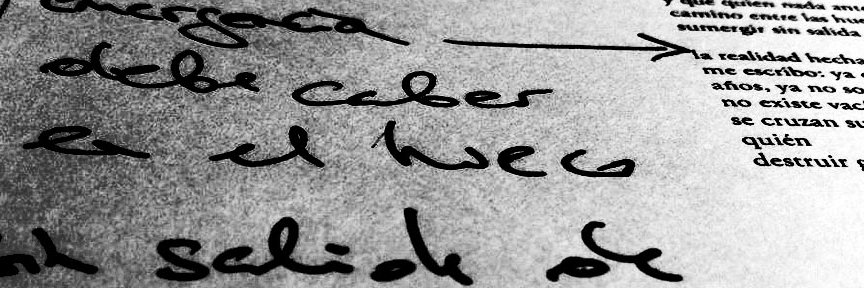 emergencia
debe caber
en el hueco
salida de
y que quien nada
camino entre las
sumergir sin salida
la realidad hecha
me escribo: ya
años, ya no
no existe
se cruzan
quién
destruir